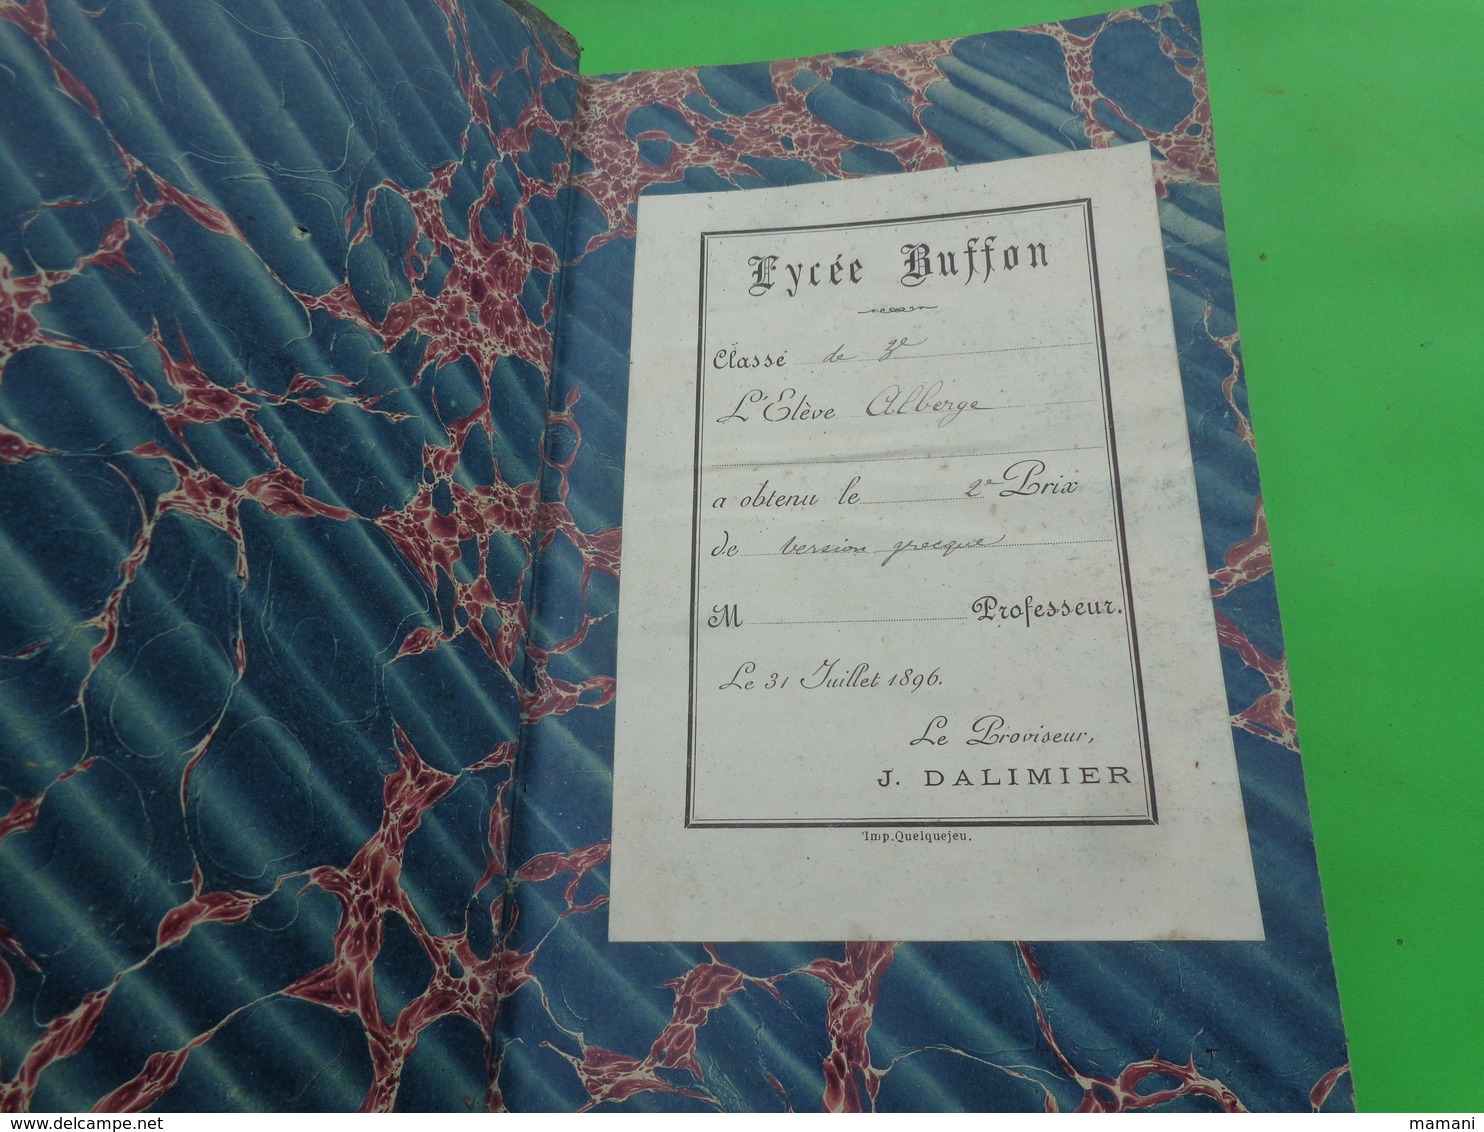 Lycée Buffon
Classe de 3e
L'Elève Alberge
a obtenu le 2e Prix
de version grecque
M Professeur.
Le 31 Juillet 1896.
Le Proviseur,
J. DALIMIER
Imp. Quelquejeu.
mamani